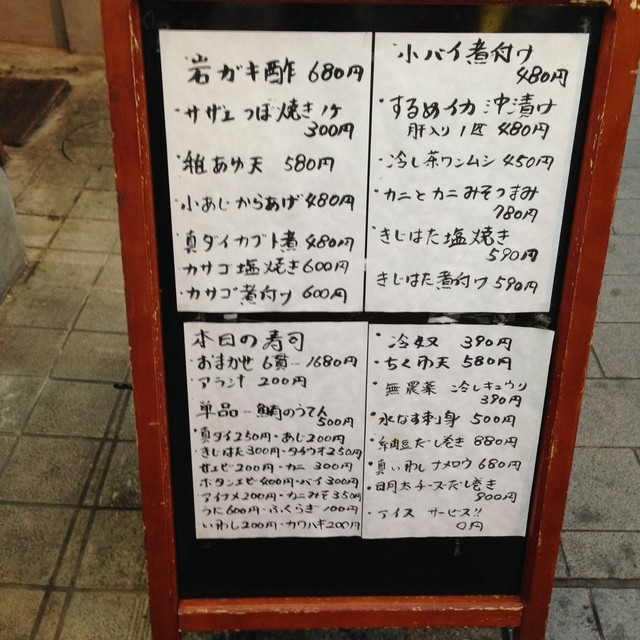 岩ガキ酢 680円
・サザエつぼ焼き1ケ
300円
・稚あゆ天 580円
・小あじからあげ480円
・真ダイカブト煮480円
・カサゴ塩焼き600円
・カサゴ煮付け 600円
・小バイ煮付け
480円
・するめイカ沖漬け
肝入り1匹 480円
・冷し茶ワンムシ 450円
・カニとカニみそつまみ
780円
・きじはた塩焼き
590円
きじはた煮付け590円
本日の寿司
・おまかせ 6貫―1680円
・アラ汁 200円
単品―鯛のうてん
500円
・真ダイ250円・あじ200円
・きじはた300円・タチウオ250円
・甘エビ200円・カニ 300円
・ボタンエビ400円・バイ300円
・アイナメ200円・カニみそ350円
・うに600円・ふくらぎ100円
・いわし200円・カワハギ200円
・冷奴 390円
・ちく布天 580円
・無農薬 冷しキュウリ
390円
・水なす刺身 500円
・納豆だし巻き 880円
・真いわしナメロウ680円
・明太チーズだし巻き
900円
・アイス サービス!!
0円